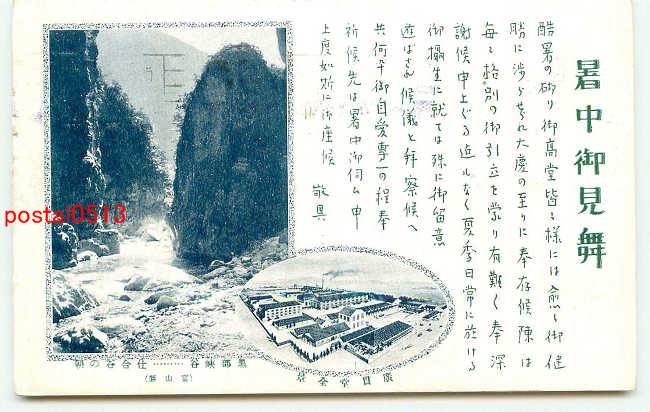 暑中御見舞
酷暑の砌り御高堂皆々様には愈々御健
勝に渉らせられ大慶の至りに奉存候陳は
毎々格別の御引立を蒙り有難く奉深
謝候申上ぐる迄もなく夏季日常に於ける
御攝生に就ては殊に御留意
遊ばさる候儀と拜察候へ
共何卒御自愛專一の程奉
祈候先は暑中御伺ひ申
上度如斯に御座候 敬具
黒部峡谷………仕合谷の朝
(富山縣)
廣貫堂全景
postal0513